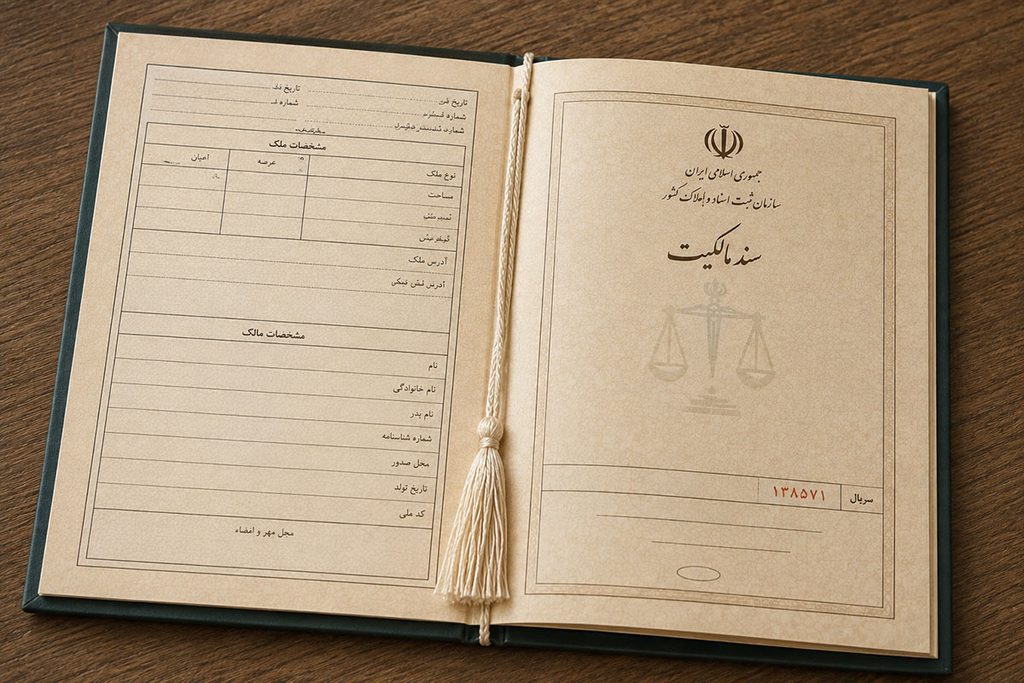 جمهوری اسلامی ایران
سازمان ثبت اسناد و املاک کشور
سند مالکیت
سریال ۱۳۸۵۷۱
تاریخ
شماره
تاریخ
شماره
شماره
مشخصات ملک
نوع ملک عرصه اعیان
مساحت
آدرس ملک
آدرس
مشخصات مالک
نام
نام خانوادگی
نام پدر
شماره شناسنامه
محل صدور
تاریخ تولد
کد ملی
محل مهر و امضاء